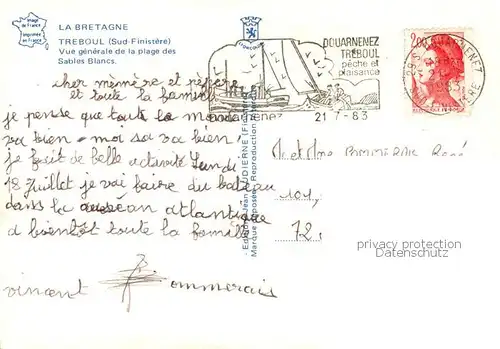 LA BRETAGNE
TREBOUL (Sud-Finistère)
Vue générale de la plage des
Sables Blancs.
Image de France
Imprimée en France
DOUARNENEZ
TREBOUL
pêche et
plaisance
21-7-83
2,00
cher mémère et pépère
et toute la famille
je pense que toute la monde
va bien - moi sa va bien
je fait de belle activité Lundi
18 juillet je vai faire du bateau
dans la océan atlantique
a bientôt toute la famille
vincent Pommerais
Mr et Mme POMMERAIS René
72
Editions Jean AUDIERNE (Finistère)
Marque déposée Reproduction
privacy protection
Datenschutz